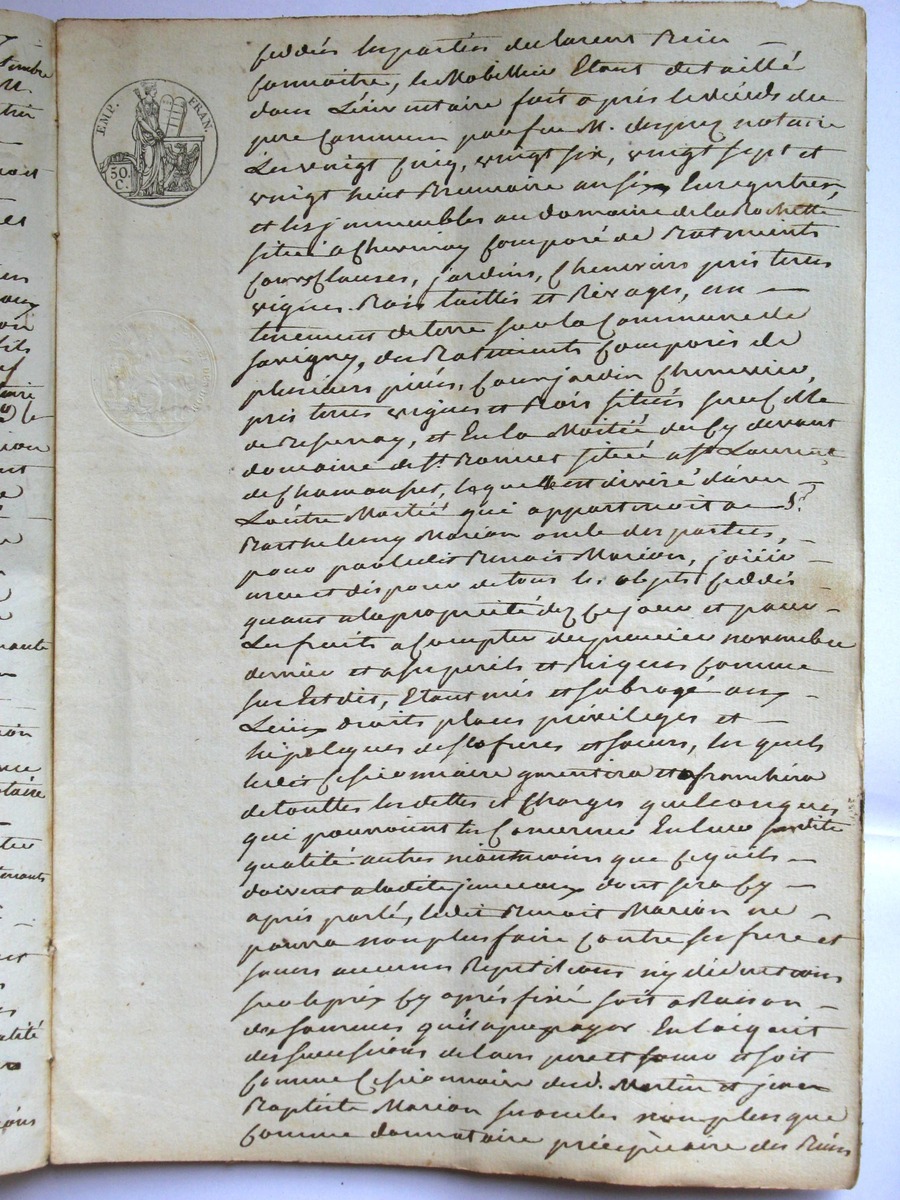 EMP. FRAN.
50. C.
ceddés les parties declarent bien
connoitre, le Mobillier Etant detaillé
dans L'inventaire fait apres le décéds du
pere Commun par feu M. notaire
Les vingt cinq, vingt six, vingt sept et
vingt huit Brumaire an six, Enregistrés,
et les immeubles au domaine de la Rochette
situé a Chevinay Composé de Batiments
Cours Closes, jardins, Chenevirs prés terres
vignes. Bois taillis et Rivages, un
tenement de terre sur la Commune de
Savigny, des Batiments Composés de
plusieurs piéces, Cour jardin Cheneviere,
prés terres vignes et Bois situés sur Celle
de Bessenay, et En la Moitié du Cy devant
domaine de St. Bonnet situé a St Laurent
de Chamousset, lequel est divisé d'avec
L'autre Moitié qui appartenoit au Sr.
Barthelemy Marion oncle des parties,
pour par ledit Benoit Marion, jouir
user et disposer de tous les objets ceddés
quant a la propriété dez ce jour et pour
Les fruits a Compter du premier novembre
dernier et a ses perils et Risques Comme
sus Est dit, Etant mis et subrogé aux
Lieux droits places priviléges et
hipoteques de ses freres et soeurs, les quels
ledit Cessionnaire garentira et afranchira
de touttes les dettes et Charges quelconques
qui pourroient les Concerner En leur susdite
qualité autres neantmoins que ce qu'ils
doivent a ladite dont sera Cy
aprés parlé, ledit Benoit Marion ne
pourra non plus faire Contre ses frere et
soeurs aucunes Repetitions ny déductions
sur le prix Cy aprés fixé soit a Raison
des sommes qu'il a pu payer En l'acquit
des successions de leurs pere et soeur et soit
Comme Cessionnaire desd. Martin et jean
Baptiste Marion non plus que
Comme donnataire préciputaire des Biens